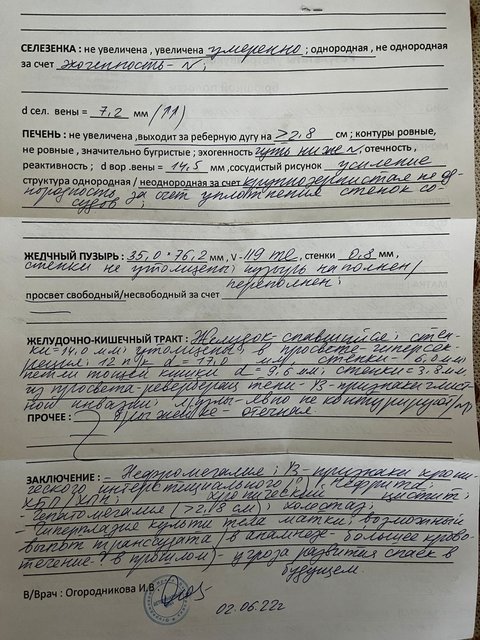 СЕЛЕЗЕНКА : не увеличена , увеличена умеренно ; однородная , не однородная
за счет эхогенность - N ;
d сел. вены = 7,2 мм (↑↑)
ПЕЧЕНЬ : не увеличена ,выходит за реберную дугу на >2,8 см ; контуры ровные,
не ровные , значительно бугристые ; эхогенность чуть ниже N. отечность ,
реактивность ; d вор .вены = 14,5 мм ,сосудистый рисунок усиление
структура однородная / неоднородная за счет крупнозернистая неод-
нородность за счет уплотнения стенок со-
судов ;
ЖЕДЧНЫЙ ПУЗЫРЬ : 35,0 * 76,2 мм , V - 119 , стенки 0,8 мм ,
стенки не утолщены; пузырь наполнен /
переполнен ;
просвет свободный/несвободный за счет
ЖЕЛУДОЧНО-КИШЕЧНЫЙ ТРАКТ : Желудок - спавшийся ; стен-
ки = 14,0 мм ; утолщены ; в просвете - гиперсек-
реция ; 12 п.к. d = 17,0 мм ; стенки = 6,0 мм ;
петли тонкой кишки d = 9,6 мм ; стенки = 3,8 мм
из просвета - реверберац. тени - УЗ - признаки глист-
ной инвазии ; л/узлы - явно не контурируют
ПРОЧЕЕ : брыжейке - отечная.
ЗАКЛЮЧЕНИЕ : - Нефромегалия ; УЗ - признаки хрони-
ческого интерстициального (?) нефрита ;
ХБП / ХПН ; хронический цистит ;
- Гепатомегалия (>2,8 см) ; холостаз ;
- Гиперплазия культи тела матки ; возможный
выпот транссудата (в анамнезе - большее крово-
течение - в прошлом) - угроза развития спаек в
будущем.
В/Врач : Огородникова И.В
02.06.22г